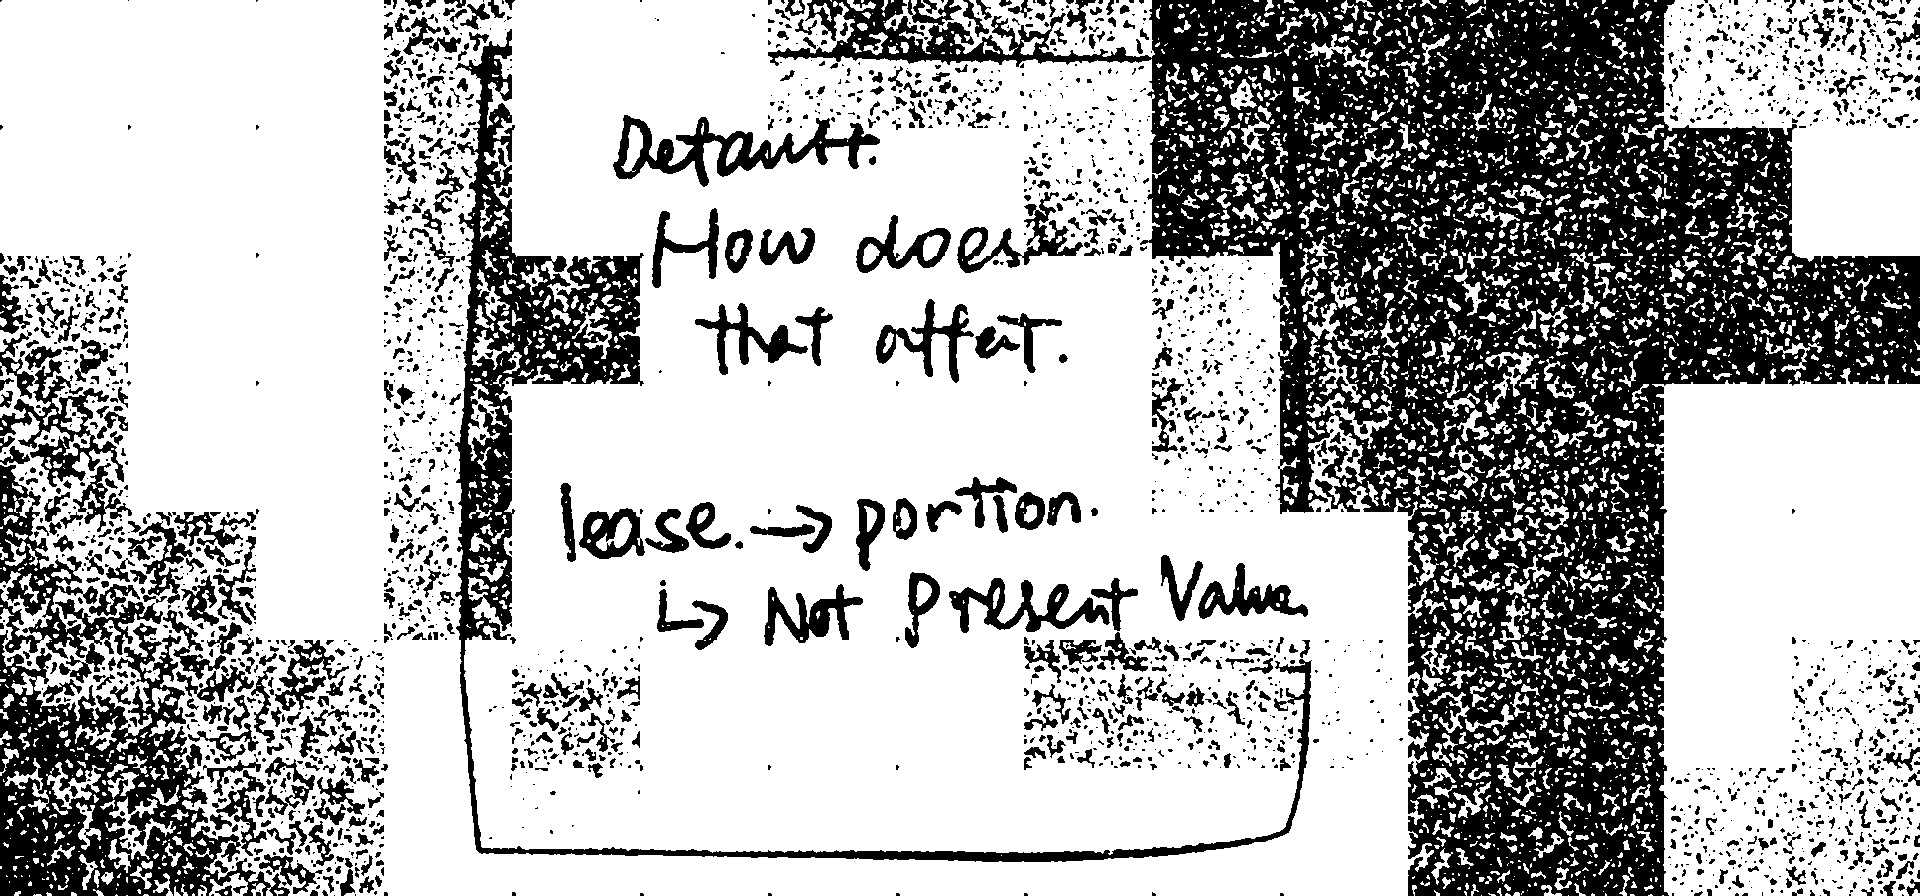 Default.
How does
that affect.
lease. → portion.
↳ Not Present Value